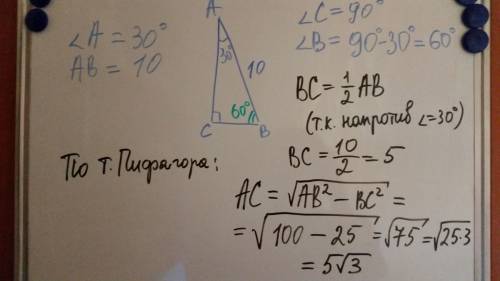 ∠A = 30°
AB = 10
A
30°
10
60°
C
B
∠C = 90°
∠B = 90°-30° = 60°
BC = 1/2 AB
(т.к. напротив ∠=30°)
BC = 10/2 = 5
По т. Пифагора:
AC = √(AB² - BC²) =
= √(100 - 25) = √75 = √(25·3)
= 5√3